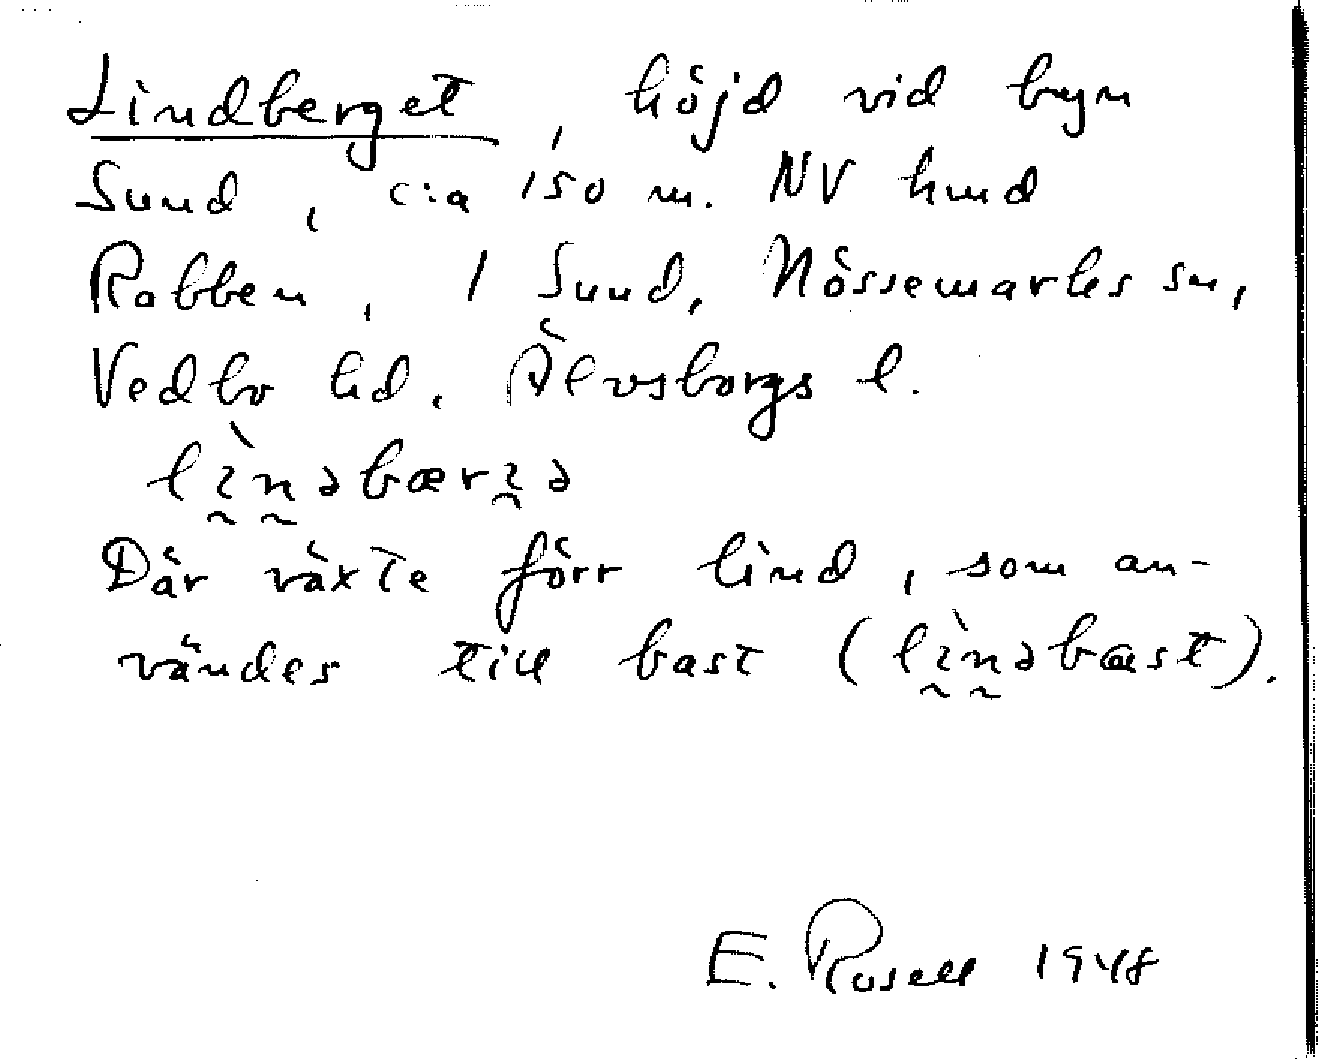 Lindberget, höjd vid byn
Sund, c:a 150 m. NV hmd
Robben, 1 Sund, Nössemarks sn,
Vedbo hd. Älvsborgs l.
lìnəbærɜə
Där växte förr lind, som an-
vändes till bast (lìnəbast).
E. Rosell 1948